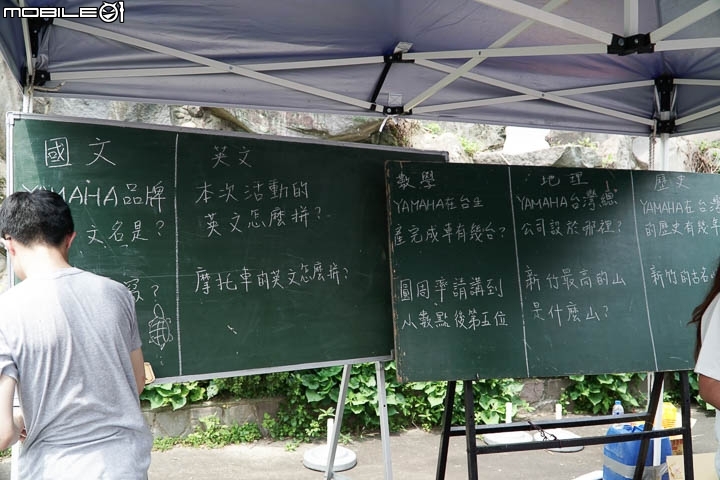 MOBILE01
國文
YAMAHA品牌
文名是?
寫?
英文
本次活動的
英文怎麼拼?
摩托車的英文怎麼拼?
數學
YAMAHA在台生
產完成車有幾台?
圓周率請講到
小數點後第五位
地理
YAMAHA台灣總
公司設於哪裡?
新竹最高的山
是什麼山?
歷史
YAMAHA在台灣
的歷史有幾年
新竹的古名